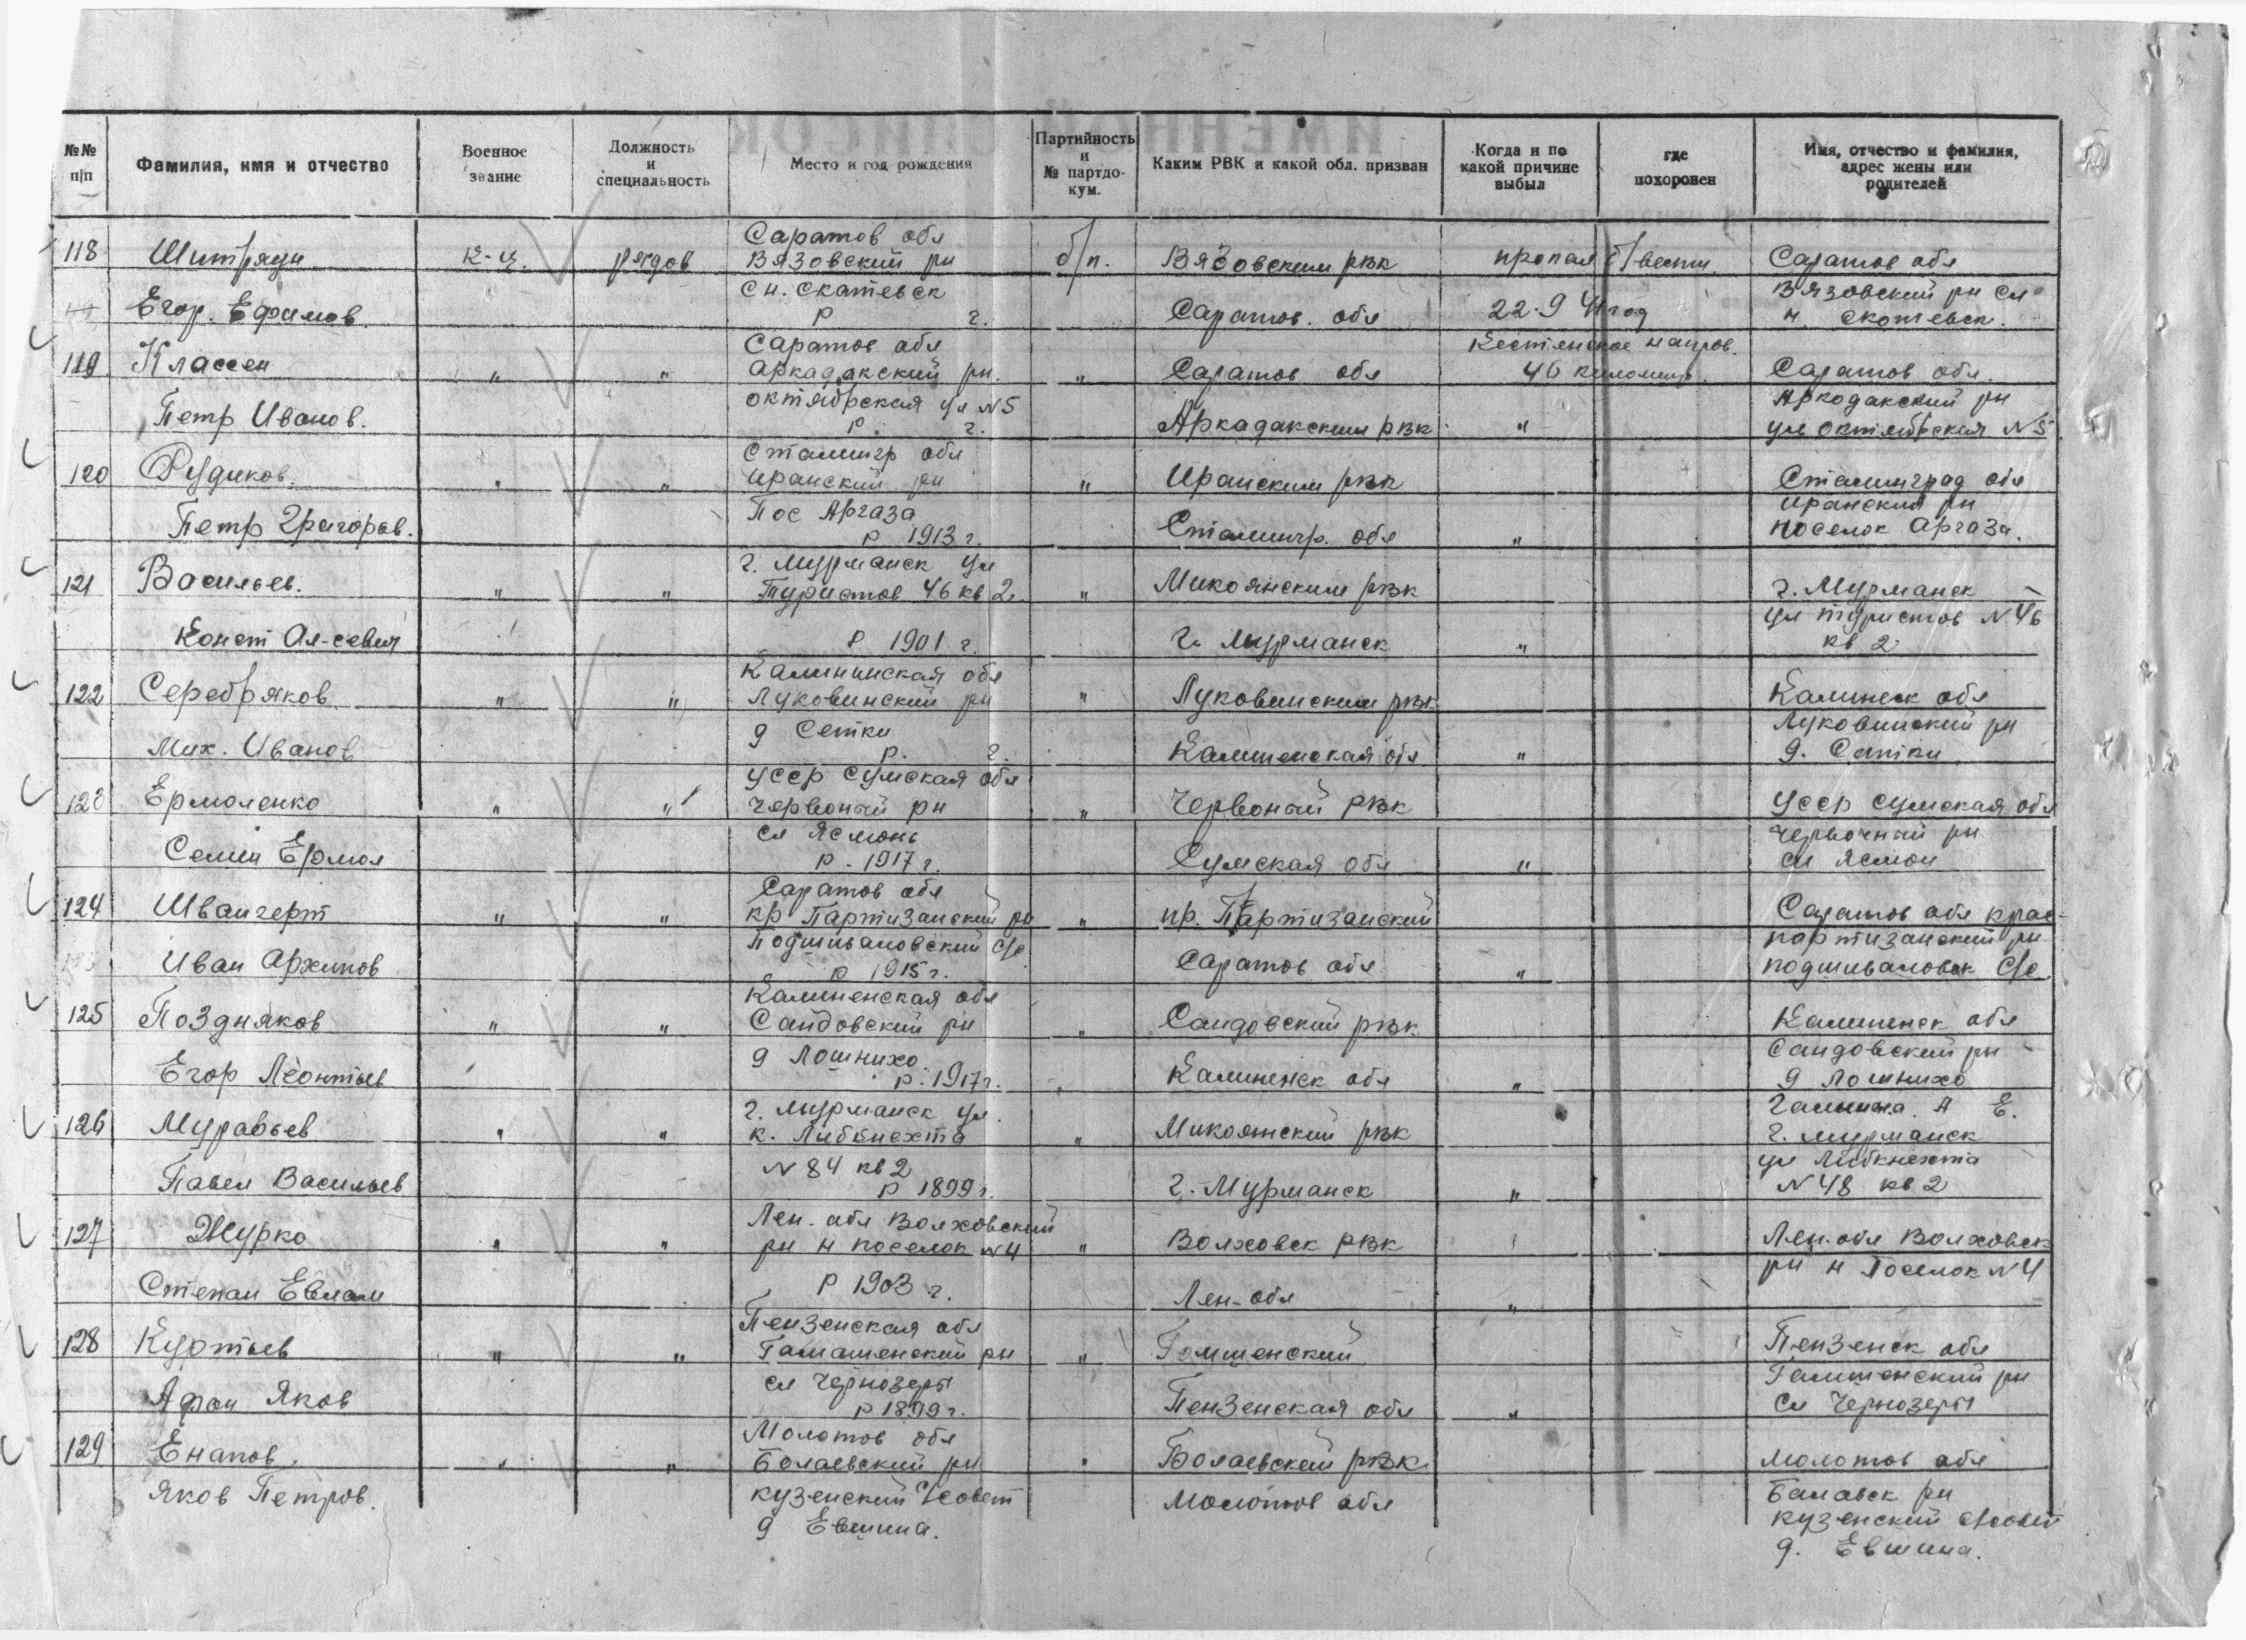 ИМЕННОЙ СПИСОК
№№ п/п
Фамилия, имя и отчество
Военное звание
Должность и специальность
Место и год рождения
Партийность и № партдокум.
Каким РВК и какой обл. призван
Когда и по какой причине выбыл
где похоронен
Имя, отчество и фамилия, адрес жены или родителей
Саратов обл
118 К-ц. рядов Вязовский рн б/п. Вязовским рвк пропал б/вести. Саратов обл
Сн. Скатевск Вязовский рн
Егор. Ефимов. р г. Саратов. обл 22.9 41 год
Саратов обл напров.
119 Классен " " Аркадакский рн. " Саратов обл 46 Саратов обл.
октябрская ул N5 Аркодакский рн
Петр Иванов. р. г. Аркадакским рвк " ул октябрская N5
Сталингр обл
120 " " Иранский рн " Иранским рвк Сталинград обл
Пос Аргаза Иранский рн
Петр Григорьв. р 1913 г. Сталингр. обл " поселок Аргаза.
г. Мурманск ул
121 Васильев. " " Туристов 46 кв 2. " Микоянским рвк г. Мурманск
ул туристов N 46
Конст Ал-севич р 1901 г. г. Мурманск " кв 2
Калининская обл
122 Серебряков " " Луковинский рн " Луковинским рвк Калинск обл
д Сетки Луковинский рн
Мих. Иванов р. г. Калиненская обл " д. Сетки
УССР Сумская обл
123 Ермоленко " " Червоный рн " Червоный рвк УССР Сумская обл
сл Ясмонь рн
Семен Ермол р. 1917 г. Сумская обл " сл Ясмон
Саратов обл
124 Швангерт " " кр Партизанский рн " кр. Партизанский Саратов обл крас-
Подшиваловский с/с партизанский рн
Иван Архипов р 1915 г. Саратов обл " подшиваловск с/с
Калиненская обл
125 Поздняков " " Сандовский рн " Сандовский рвк Калиненск обл
д Лошнихо Сандовский рн
Егор Леонтьев р. 1917 г. Калиненск обл " д Лошнихо
г. Мурманск ул. А Е.
126 Муравьев " " к. Либкнехта " Микоянский рвк г. Мурманск
N 84 кв 2 ул Либкнехта
Павел Васильев р 1899 г. г. Мурманск " N 48 кв 2
Лен. обл Волховский
127 Журко " " рн н поселок N4 " Волховск РВК Лен. обл Волховск
рн н Поселок N 4
Степан Евлам р 1903 г. Лен-обл "
Пензенская обл
128 Куртьев " " рн " Пензенск обл
сл Чернозеры рн
Афан Яков р 1899 г. Пензенская обл " сл Чернозеры
Молотов обл
129 Енапов. " " Болаевский рн " Болаевским рвк Молотов обл
Яков Петров. кузенский с/совет Молотов обл Балавск рн
д Евшина. кузенский с/совет
д. Евшина.